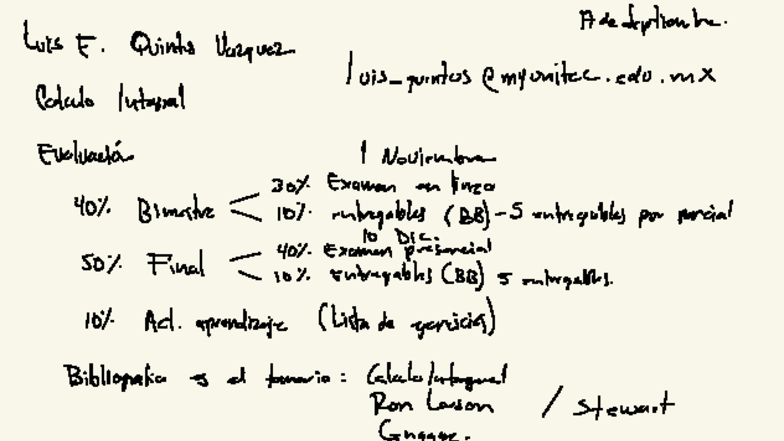 17 de Septiembre.
Luis E. Quintos Vazquez
luis_quintos@myunitec.edu.mx
Calculo Integral
Evaluación
1 Noviembre
30% Examen en linea
40% Bimestre
10% entregables (BB) - 5 entregables por parcial
10 Dic.
40% Examen presencial
50% Final
10% Entregables (BB) 5 entregables.
10% Act. aprendizaje (Lista de ejercicios)
Bibliografia es el temario: Calculo Integral
Ron Larson / Stewart